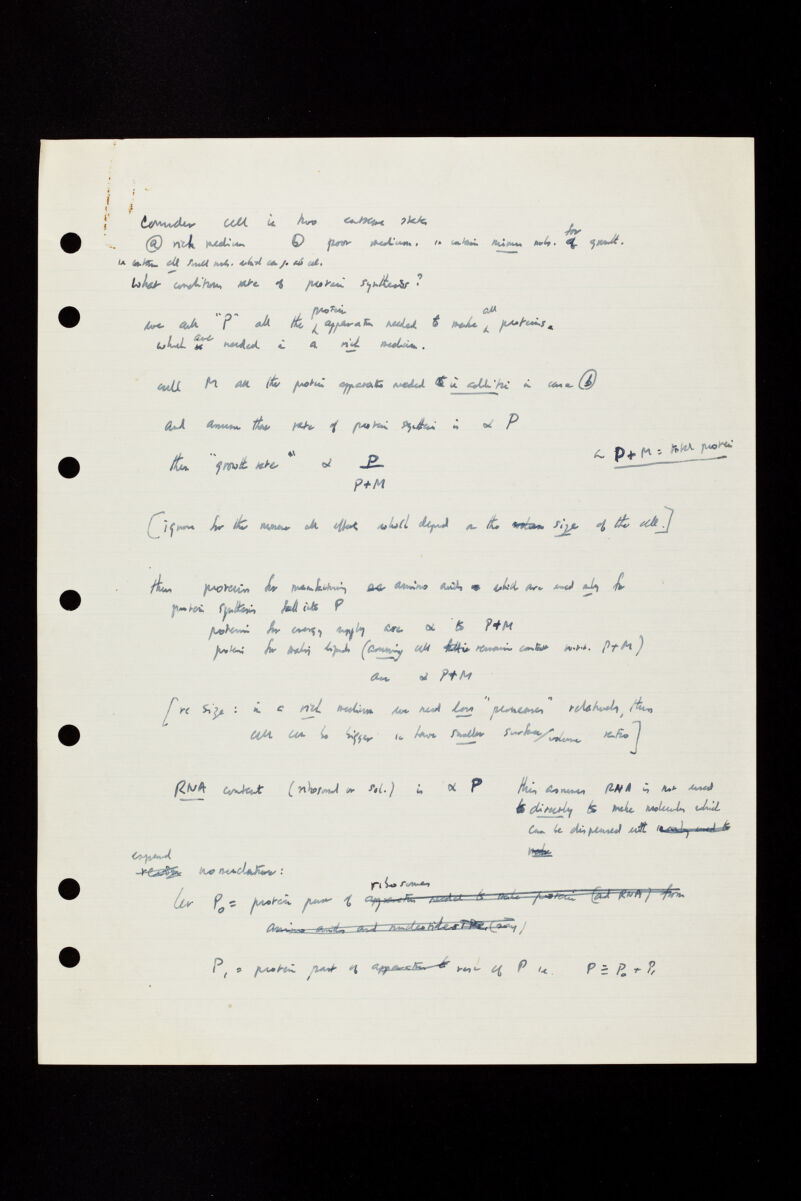 Consider cell in two extreme states
(a) rich medium (b) poor medium. ie contain minimum mols. for growth.
ie contain all small mols. which can go into cell.
What conditions rate of protein synthesis?
we call "P" all the protein apparatus needed to make all proteins.
which are needed in a rich medium.
call M all the protein apparatus needed in addition in case (b)
and assume that rate of protein synthesis is ∝ P
then "growth rate" ∝ P / P+M
P+M = total protein
[ignore for the moment all effects which depend on the size of the cell.]
thus proteins for amino acids which are used only for
protein synthesis fall into P
proteins for energy supply are ∝ to P+M
protein for making lipids (assuming cell remains constant w.r.t. P+M)
are ∝ P+M
[re size: in a rich medium we need less "permeases" relatively, thus
cell can be bigger ie have smaller surface/volume ratio]
RNA content (ribosomal or sol.) is ∝ P
this assumes RNA is not used
directly to make molecules which
can be dispensed with
expand
nomenclature:
Let P₀ = protein part of ribosomes
apparatus needed to make protein (and RNA) from
amino acids and nucleotides (say)
P₁ = protein part of rest of P ie. P ≡ P₀ + P₁